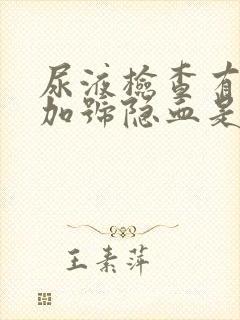 尿液檢查有
加號隐血是
王素萍